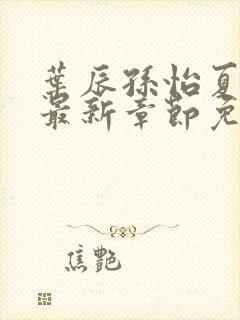 葉辰孫怡夏
最新章節免
焦艷